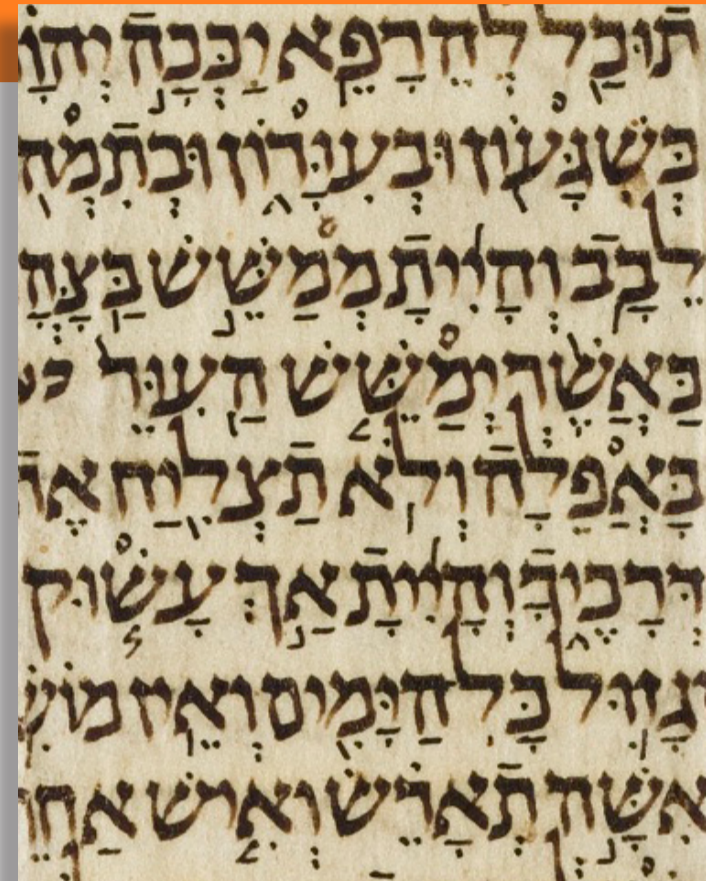 תוּכַל לְהֵרָפֵא יַכְּכָה יְהוָ
בְּשִׁגָּעוֹן וּבְעִוָּרוֹן וּבְתִמְה
לֵבָב וְהָיִיתָ מְמַשֵּׁשׁ בַּצָּהֳ
כַּאֲשֶׁר יְמַשֵּׁשׁ הַעִוֵּר
בָּאֲפֵלָה וְלֹא תַצְלִיחַ אֶת
דְּרָכֶיךָ וְהָיִיתָ אַךְ עָשׁוּק
גָזוּל כָּל הַיָּמִים וְאֵין מוֹשִׁ
אִשָּׁה תְאָרֵשׂ וְאִישׁ אַחֵ